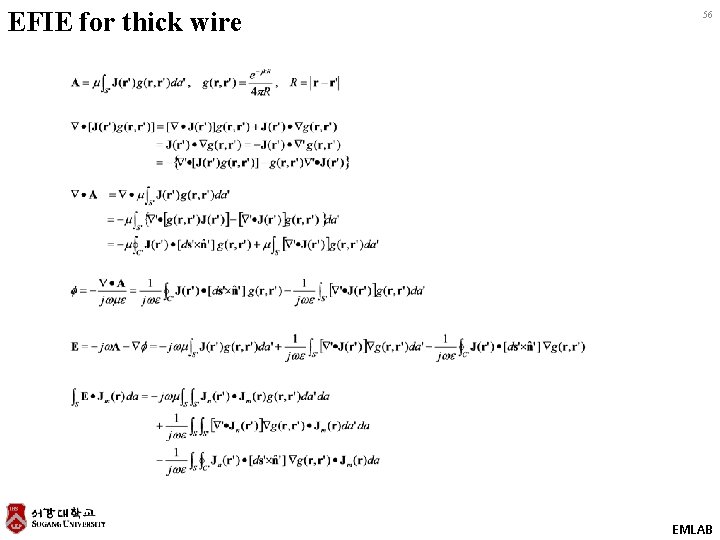 EFIE for thick wire
56
A = μ∫_S' J(r')g(r,r')da', g(r,r') = e^{-jkR}/4πR, R = |r − r'|
∇•[J(r')g(r,r')] = [∇•J(r')]g(r,r') + J(r')•∇g(r,r')
= J(r')•∇g(r,r') = −J(r')•∇'g(r,r')
= {∇'•[J(r')g(r,r')] g(r,r')∇'•J(r')}
∇•A = ∇•μ∫_S' J(r')g(r,r')da'
= −μ∫_S' {∇'•[g(r,r')J(r')] − [∇'•J(r')]g(r,r')}da'
= −μ∮_C' J(r')•[ds'×n̂']g(r,r') + μ∫_S' [∇'•J(r')]g(r,r')da'
ϕ = −∇•A/jωμε = 1/jωε ∮_C' J(r')•[ds'×n̂']g(r,r') − 1/jωε ∫_S' [∇'•J(r')]g(r,r')da'
E = −jωA − ∇ϕ = −jωμ∫_S' J(r')g(r,r')da' + 1/jωε ∫_S' [∇'•J(r')]∇g(r,r')da' − 1/jωε ∮_C' J(r')•[ds'×n̂']∇g(r,r')
∫_S E•J_m(r)da = −jωμ∫_S∫_S' J_n(r')•J_m(r)g(r,r')da'da
+ 1/jωε ∫_S∫_S' [∇'•J_n(r')]∇g(r,r')•J_m(r)da'da
− 1/jωε ∫_S∮_C' J_n(r')•[ds'×n̂']∇g(r,r')•J_m(r)da
서강대학교
SOGANG UNIVERSITY
EMLAB